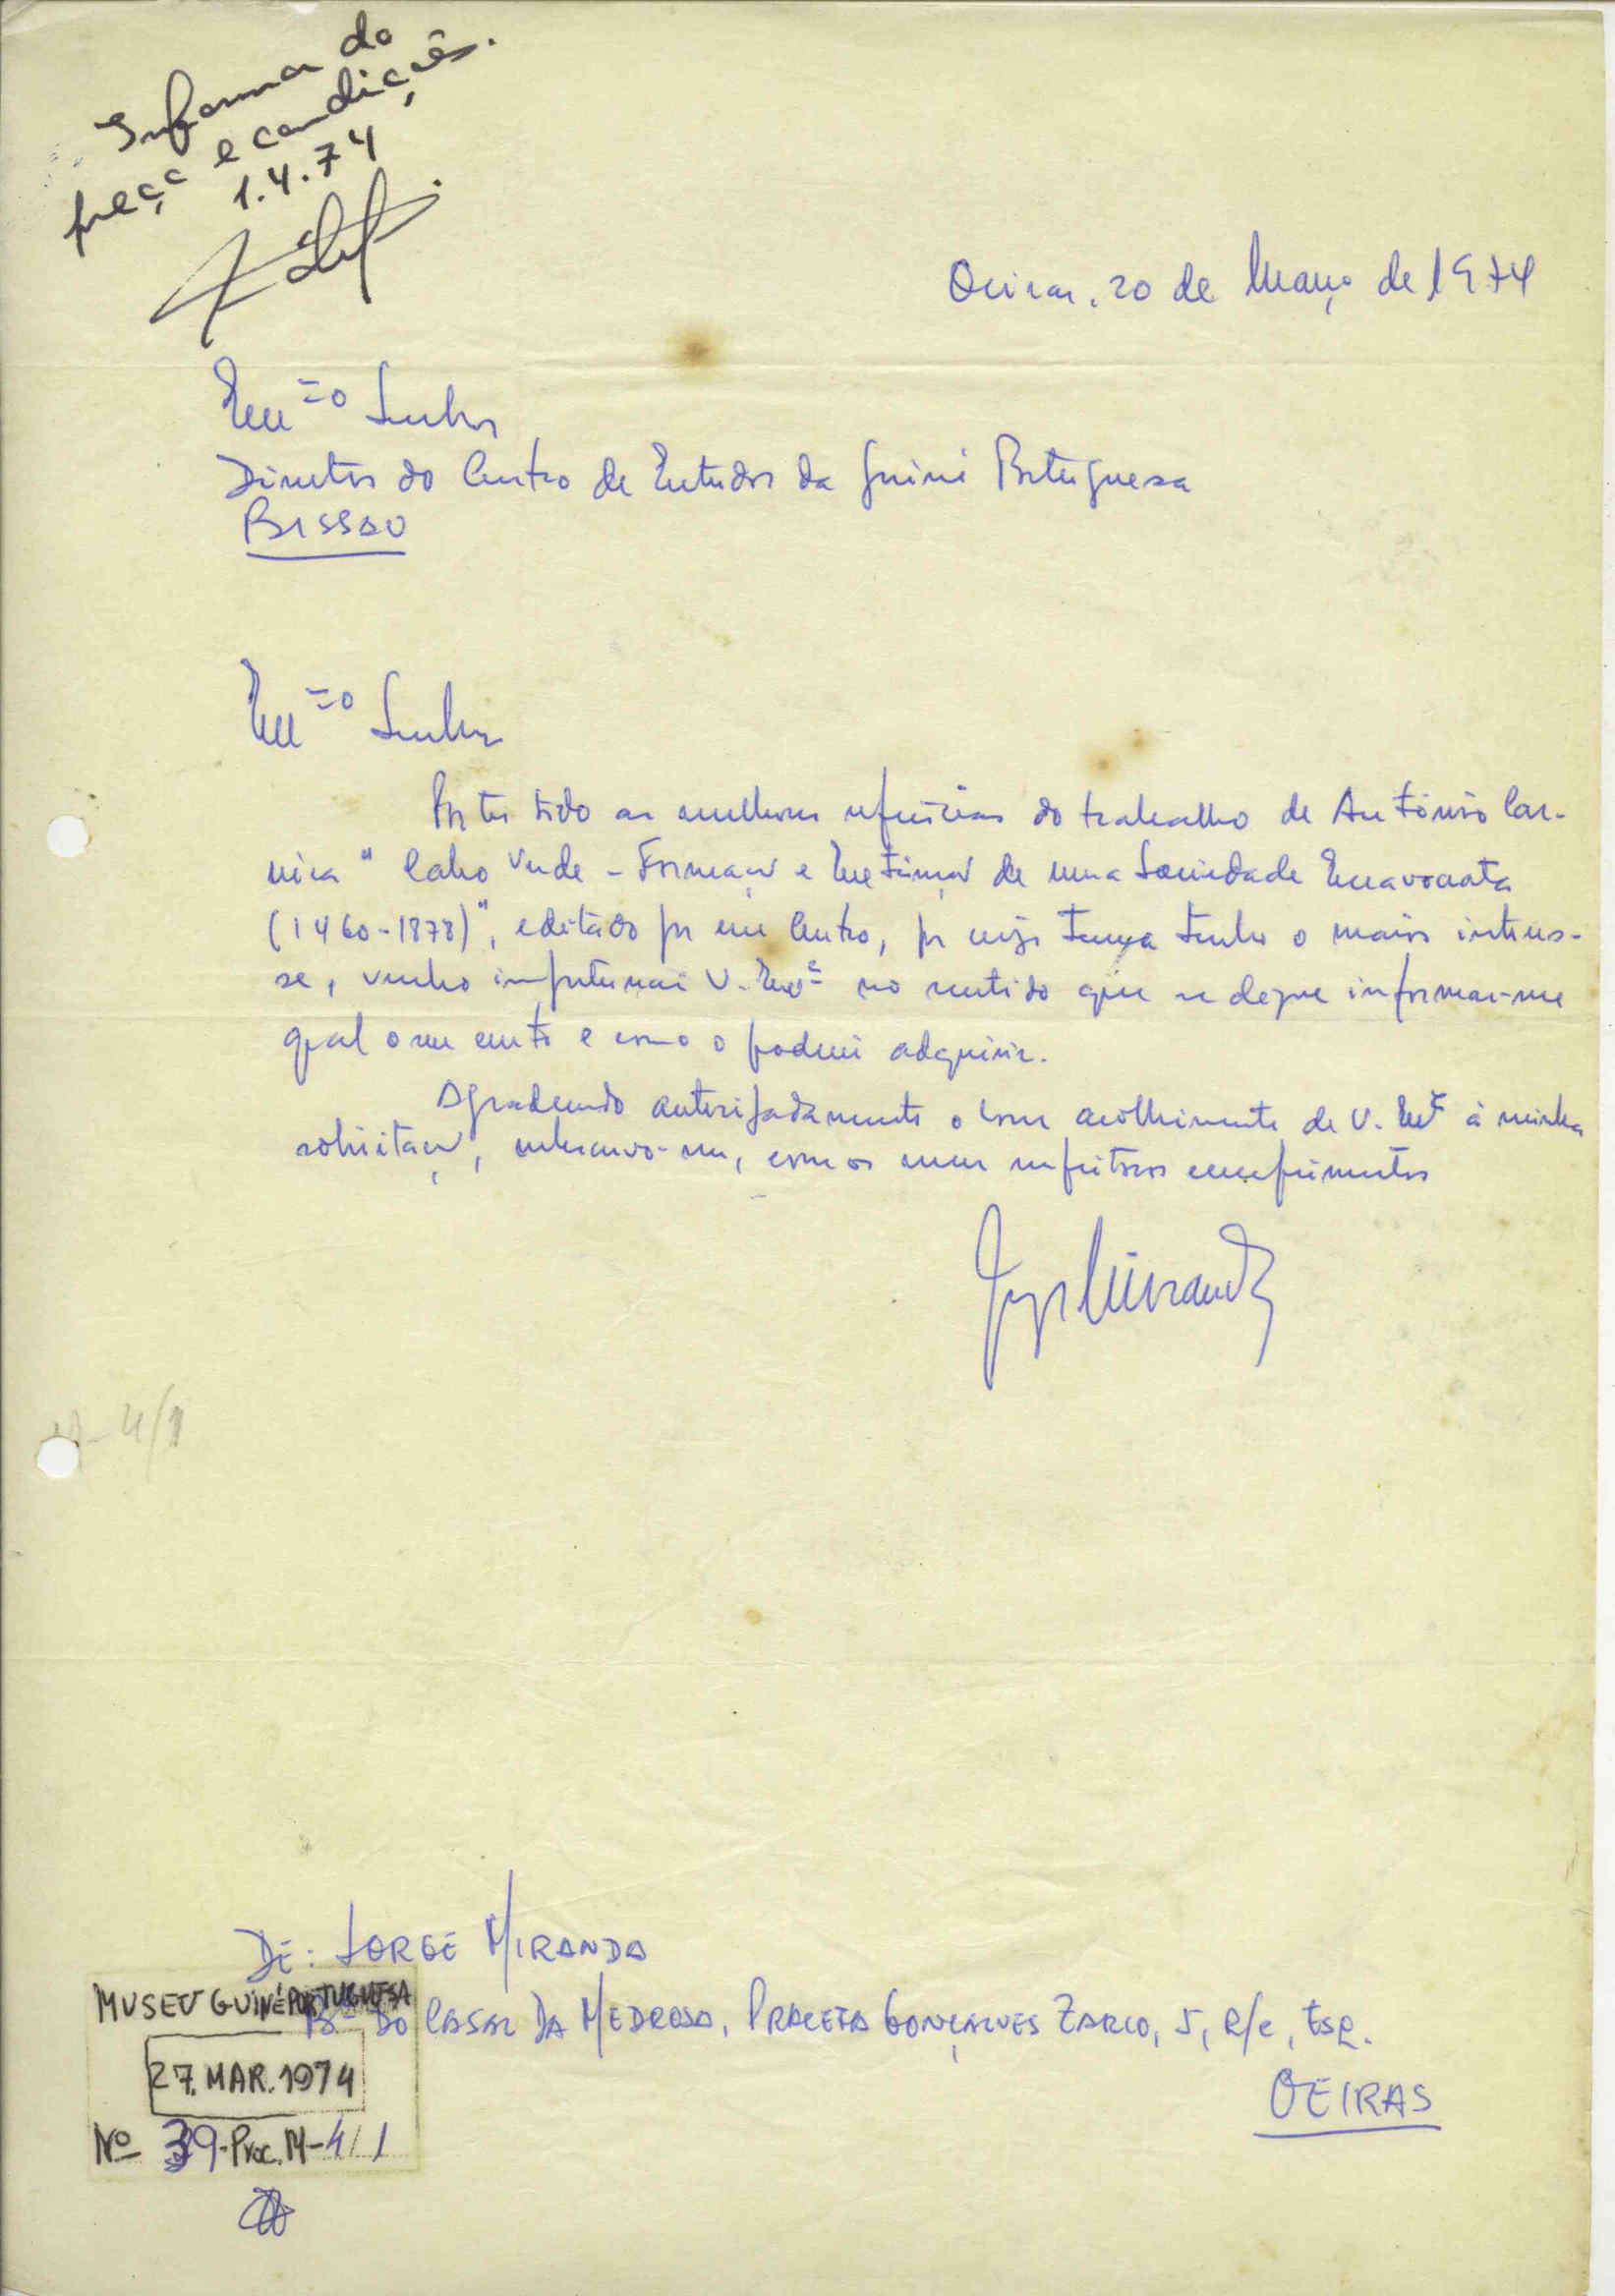 Informar do
preço e condições.
1.4.74
Oeiras, 20 de Março de 1974
Exmº Senhor
Director do Centro de Estudos da Guiné Portuguesa
BISSAU
Exmº Senhor
Por ter tido as melhores referências do trabalho de António Car-
reira "Cabo Verde - Formação e Extinção de uma Sociedade Escravocrata
(1460-1878)", editado por esse Centro, por cujo tema tenho o maior interes-
se, venho importunar V. Exª no sentido que se digne informar-me
qual o seu custo e como o poderei adquirir.
Agradecendo antecipadamente o bom acolhimento de V. Exª à minha
solicitação, subscrevo-me, com os meus respeitosos cumprimentos
Jorge Miranda
DE: JORGE MIRANDA
Bº DO CASAL DA MEDROSA, PRACETA GONÇALVES ZARCO, 5, R/C, ESQ.
OEIRAS
MUSEU GUINÉ PORTUGUESA
27. MAR. 1974
Nº 39-Proc. M-4/1